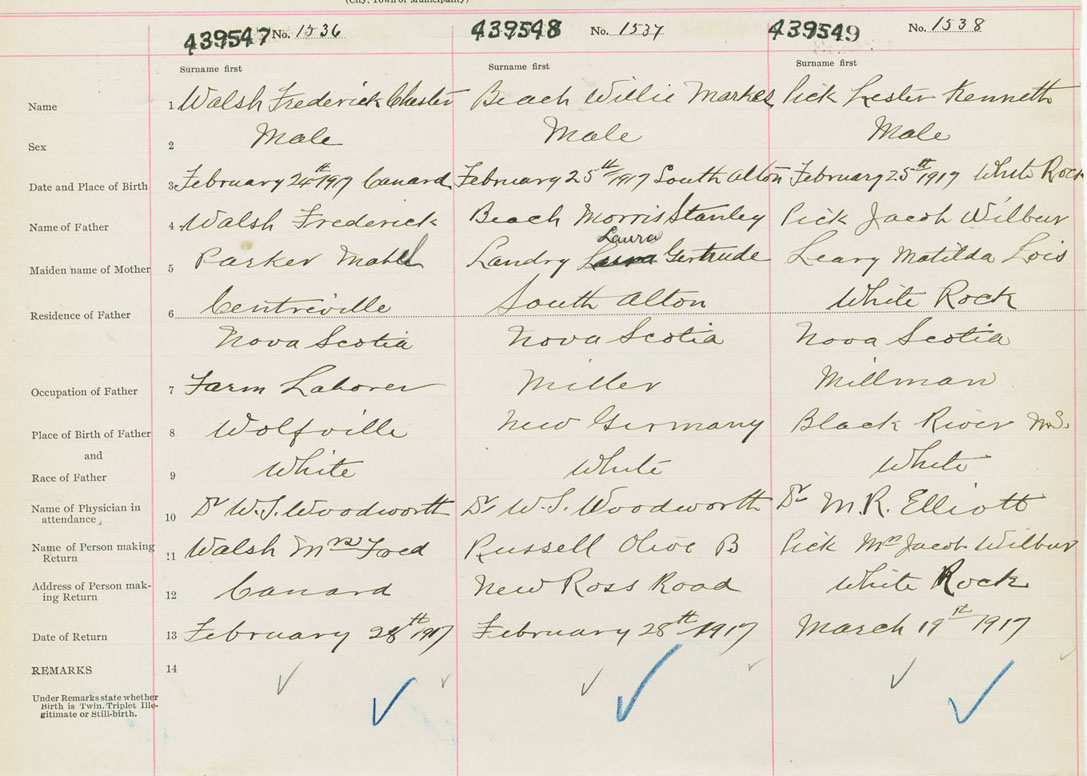 (City, Town or Municipality)
439547 No. 1536 439548 No. 1537 439549 No. 1538
Surname first Surname first Surname first
Name 1 Walsh Frederick Chester Beach Willie Markes Pick Lester Kenneth
Sex 2 Male Male Male
Date and Place of Birth 3 February 24th 1917 Canard February 25th 1917 South Alton February 25th 1917 White Rock
Name of Father 4 Walsh Frederick Beach Morris Stanley Pick Jacob Wilbur
Laura
Maiden name of Mother 5 Parker Mabel Landry Gertrude Leary Matilda Lois
Residence of Father 6 Centreville South Alton White Rock
Nova Scotia Nova Scotia Nova Scotia
Occupation of Father 7 Farm Laborer Miller Millman
Place of Birth of Father 8 Wolfville New Germany Black River N.S.
and
Race of Father 9 White White White
Name of Physician in
attendance 10 Dr W.S. Woodworth Dr W.S. Woodworth Dr M.R. Elliott
Name of Person making
Return 11 Walsh Mrs Fred Russell Olive B Pick Mrs Jacob Wilbur
Address of Person mak-
ing Return 12 Canard New Ross Road White Rock
Date of Return 13 February 28th 1917 February 28th 1917 March 19th 1917
REMARKS 14
Under Remarks state whether
Birth is Twin, Triplet Ille-
gitimate or Still-birth.